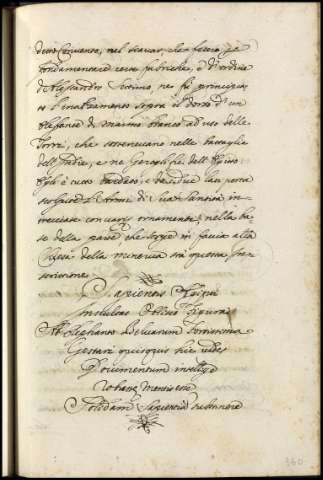 detto Convento, nel scavar, che fecero, p
fondamentare certe fabriche, e d'ordine
d'Alessandro Settimo, ne fù principia
to l'inalzamento sopra il dorso d'un
elefante di marmo bianco ad uso delle
Torri, che sostenevano nelle battaglie
dell'Indie, e ne Geroglifici dell'Egitto
Egli è tutto
scolpito l'Arme di in
trecciate con varij ornamenti, nella ba
se della parte, che sorge in faccia alla
Chiesa della Minerva stà questa In
scrizione
Sapientis Ægipti
Insculptas Obelisco Figuras
Ab Elephanto Belluarum Fortissima
Gestari quisquis hic vides
Documentum intellige
Robustæ Mentis esse
Solidam Sapientiam sustinere
360